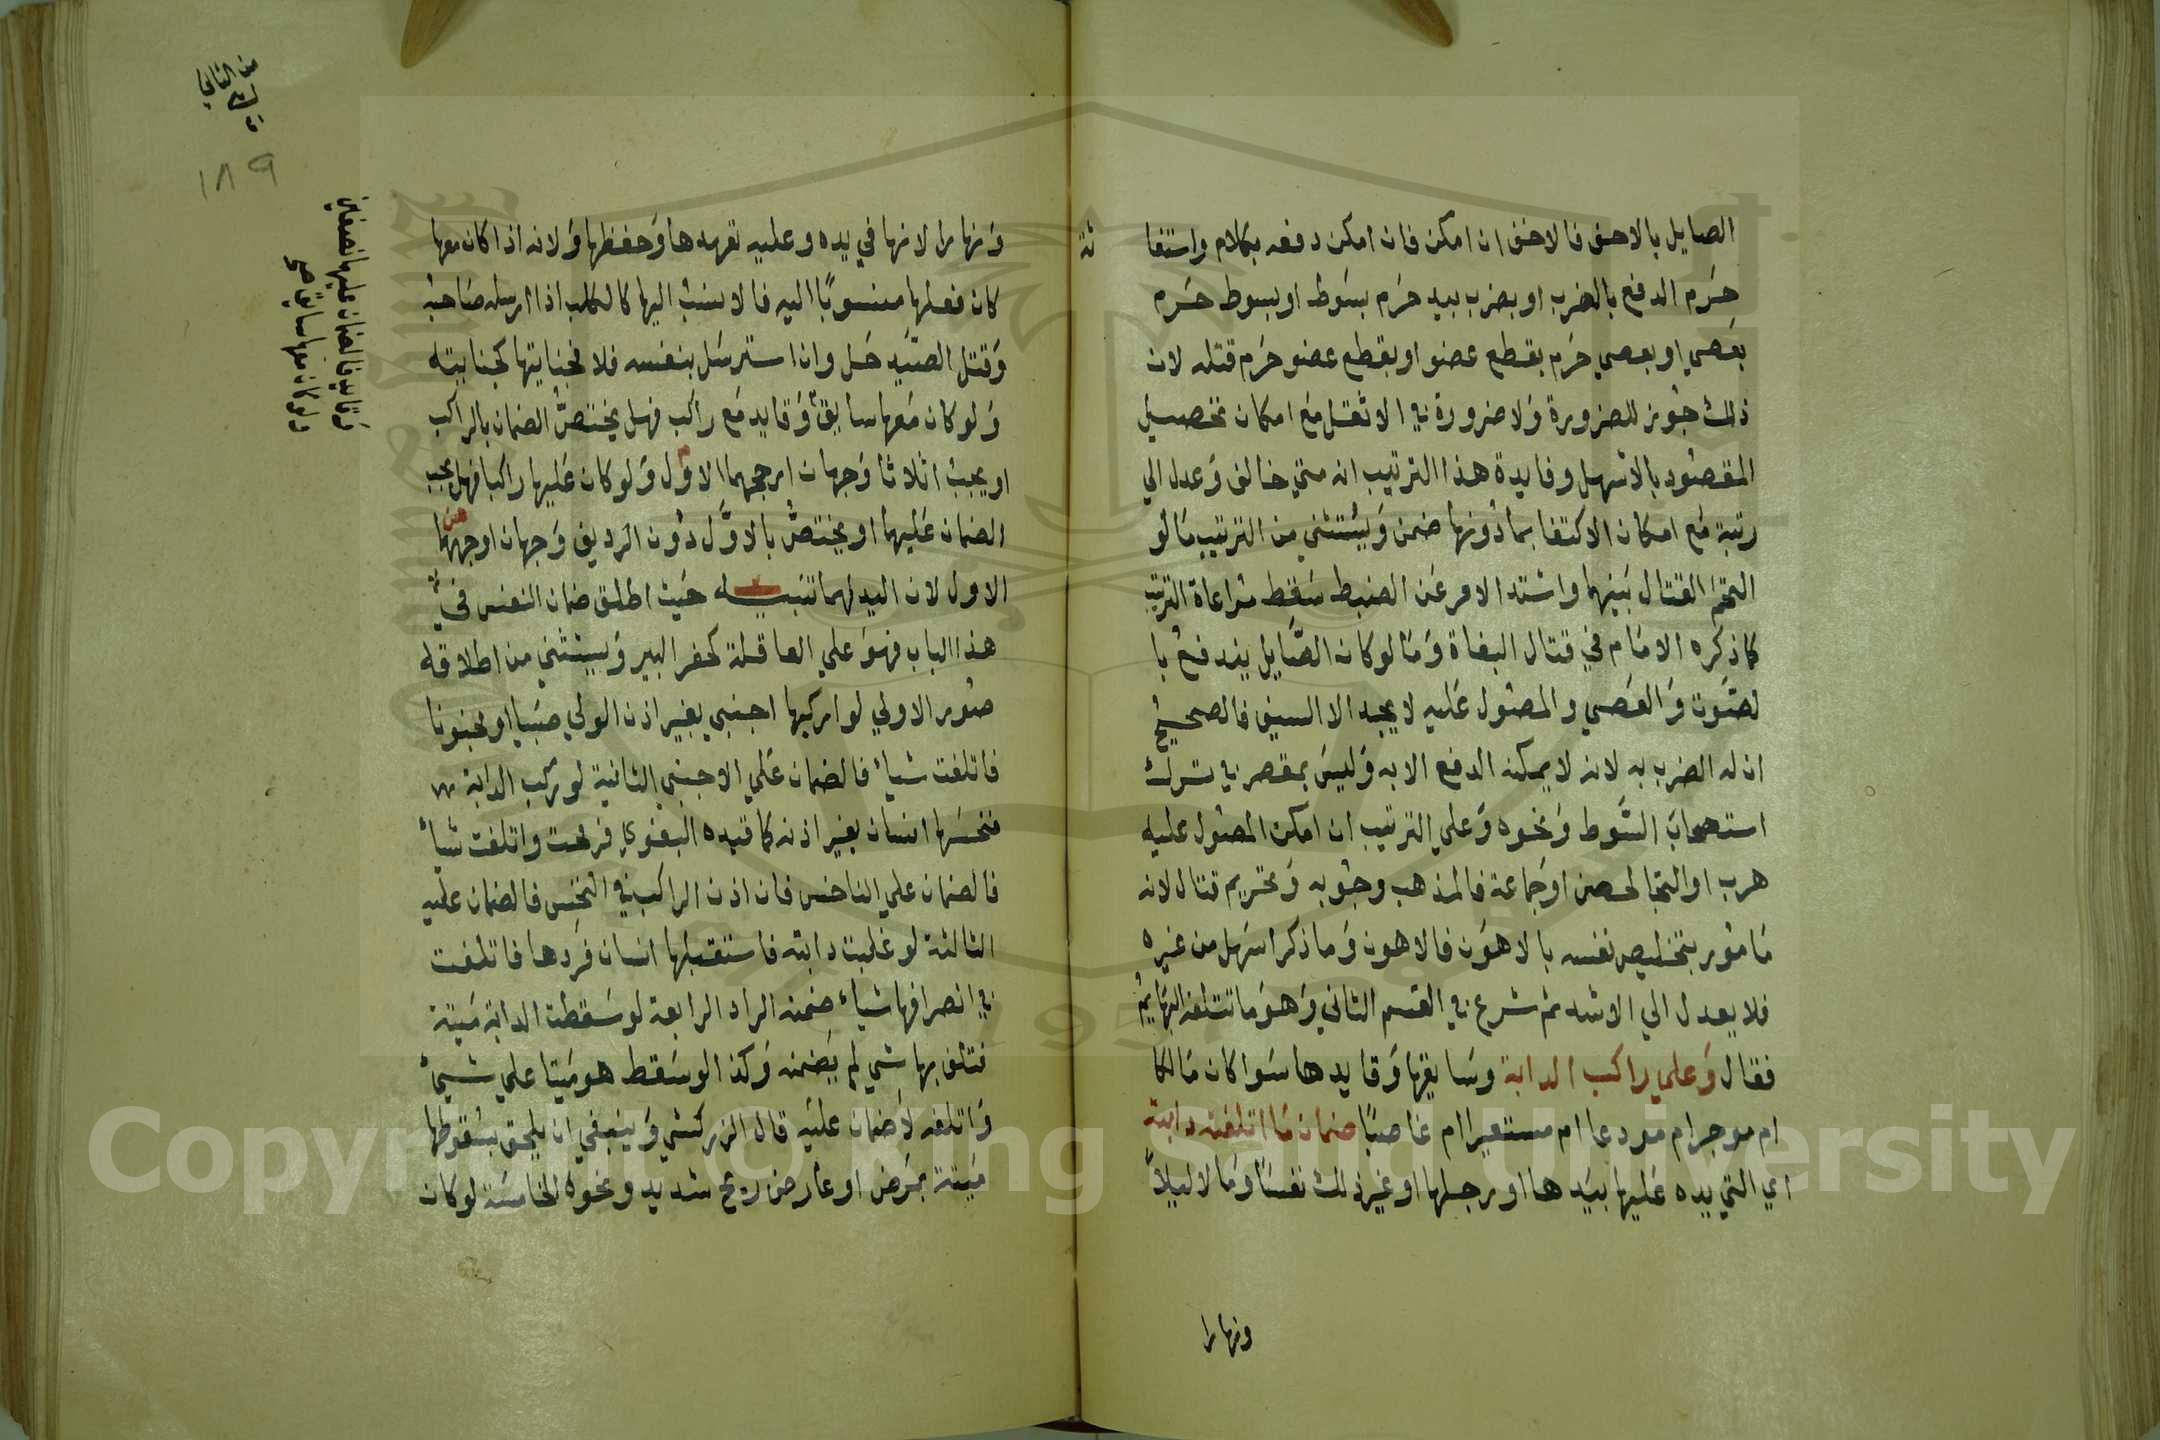 الصايل بالاخف فالاخف ان امكن فان امكن دفعه بكلام واستغا
ثة
حرم الدفع بالضرب او بضرب بيد حرم بسوط او بسوط حرم
بعصي او بعصي حرم بقطع عضو او بقطع عضو حرم قتله لان
ذلك جوز للضرورة ولا ضرورة في الاثقل مع امكان تحصيل
المقصود بالاسهل وفايدة هذا الترتيب انه متي خالف وعدل الي
رتبة مع امكان الاكتفا بما دونها ضمن ويستثني من الترتيب مالو
التحم القتال بينهما واشتد الامر عن الضبط سقط مراعاة الترتيب
كما ذكره الامام في قتال البغاة وما لو كان الصايل يندفع با
لصوت والعصي والمصول عليه لا يجد الا السيف فالصحيح
ان له الضرب به لانه لا يمكنه الدفع الا به وليس بمقصر في ترك
استصحاب السوط ونحوه وعلي الترتيب ان امكن المصول عليه
هرب او التجا لحصن او جماعة فالمذهب وجوبه وتحريم قتال لانه
مامور بتخليص نفسه بالاهون فالاهون وما ذكر اسهل من غيره
فلا يعدل الي الاشد ثم شرع في القسم الثاني وهو ما تتلفه البهايم
فقال وعلي راكب الدابة وسايقها وقايدها سوا كان مالكا
ام موجرام مودعا ام مستعيرا ام غاصبا ضمان ما اتلفته دابته
اي التي يده عليها بيدها او برجلها او غير ذلك نفسا ومالا ليلا
ونهارا
من الثاني
١٨٩
ونهارا لانها في يده وعليه تعهدها وحفظها ولانه اذا كان معها
كان فعلها منسوبا اليه فالا نسب اليها كالكلب اذا ارسله صاحبه
وقتل الصيد حل وان استرسل بنفسه فلا فجنايتها كجنايته
ولو كان معها سايق وقايد مع راكب فهل يختص الضمان بالراكب
او يجب اثلاثا وجهان ارجحهما الاول ولو كان عليها راكبا فهل يجب
الضمان عليهما او يختص بالاول دون الرديف وجهان اوجههما
الاول لان اليد لهما تنبيه حيث اطلق ضمان النفس في
هذا الباب فهو علي العاقلة كحفر البير ويستثني من اطلاقه
صور الاولي لو اركبها اجنبي بغير اذن الولي صبيا او مجنونا
فاتلفت شيا فالضمان علي الاجنبي الثانية لو ركب الدابة
فنخسها انسان بغير اذنه كما قيده البغوي فرمحت واتلفت شيا
فالضمان علي الناخس فان اذن الراكب في النخس فالضمان عليه
الثالثة لو غلبت دابته فاستقبلها انسان فردها فاتلفت
في انصرافها شيا ضمنه الراد الرابعة لو سقطت الدابة ميتة
فتلف بها شي لم يضمنه وكذا لو سقط هو ميتا علي شي
واتلفه لا ضمان عليه قال الزركشي وينبغي ان يلحق بسقوطها
ميتة بمرض او عارض ريح شديد ونحوه الخامسة لو كان
ولو كان معها سايق
وقايد فالضمان عليهما نصفين
Copyright © King Saud University
1957